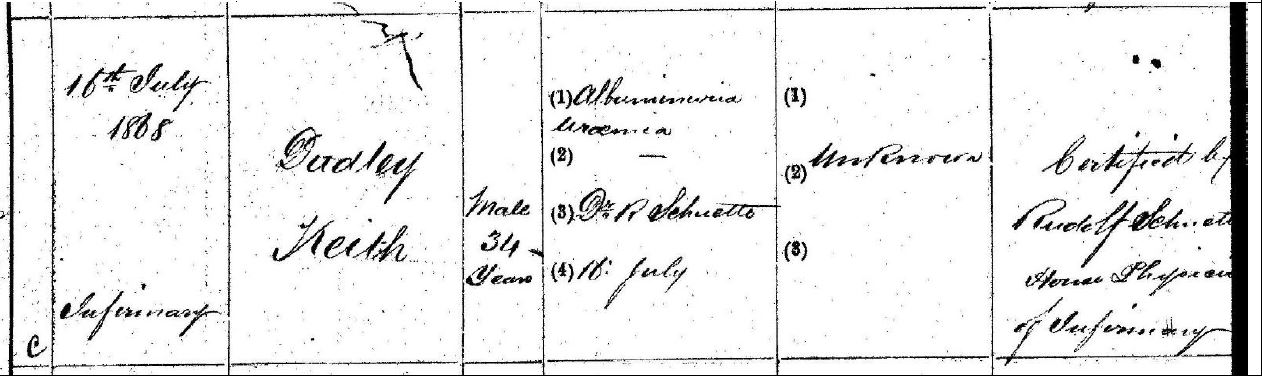 16th July
1868
Infirmary
C
Dudley
Keith
Male
34
Years
(1) Albuminuria
Uraemia
(2) —
(3) Dr R Schuette
(4) 16: July
(1)
(2) Unknown
(3)
Certified by
Rudolf Schuett
House Physician
of Infirmary